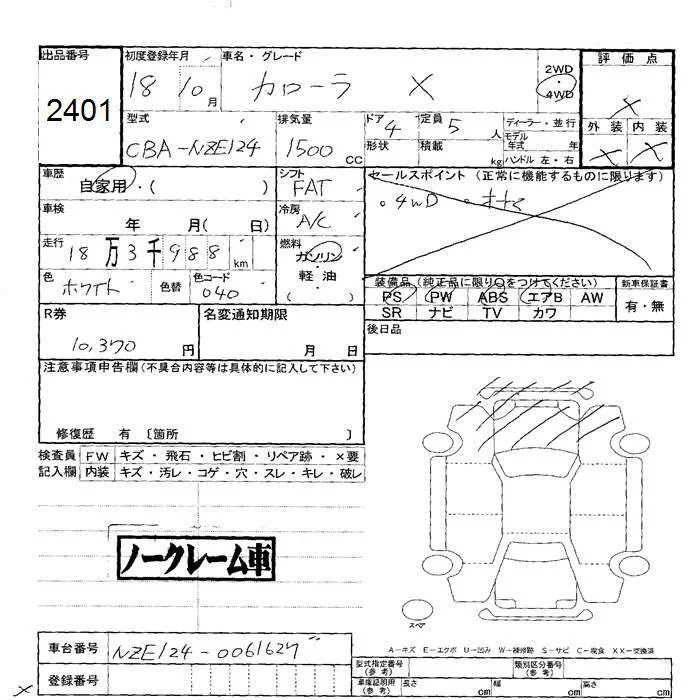 出品番号 初度登録年月 車名・グレード 評価点
2401 18 10月 カローラ X 2WD・4WD X
型式 排気量 ドア 定員 ディーラー・並行 外装 内装
CBA-NZE124 1500cc 4 5人 モデル年式 年 X X
形状 積載 kg ハンドル 左・右
車歴 シフト セールスポイント (正常に機能するものに限ります)
自家用・( ) FAT 。4WD
車検 冷房
年 月( 日) A/C
走行 燃料
18万3千988km ガソリン・軽油
色 色コード 装備品 (純正品に限り○をつけてください) 新車保証書
ホワイト 色替 040 ( ) PS PW ABS エアB AW 有・無
SR ナビ TV カワ
R券 名変通知期限 後日品
10,370円 月 日
注意事項申告欄(不具合内容等は具体的に記入して下さい)
修復歴 有 〔箇所 〕
検査員 FW キズ・飛石・ヒビ割・リペア跡・×要
記入欄 内装 キズ・汚レ・コゲ・穴・スレ・キレ・破レ
ノークレーム車
スペア
A-キズ E-エクボ U-凹み W-補修跡 S-サビ C-腐食 XX-交換済
車台番号 NZE124-0061627 型式指定番号(参考) 類別区分番号(参考)
登録番号 車庫証明用(参考) 長さ cm 幅 cm 高さ cm
X